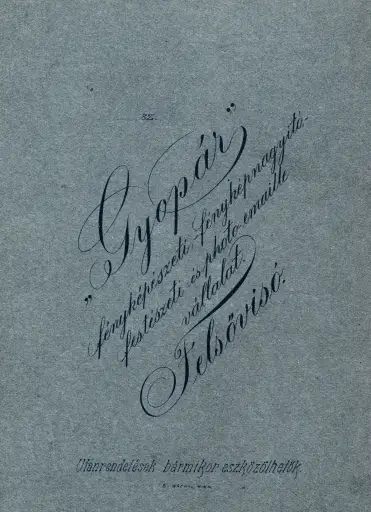 „Gyopár”
fényképészeti-fényképnagyitó-
festészeti-és-photo-emaille
vállalat.
Felsővisó.
Utánrendelések bármikor eszközölhetők.